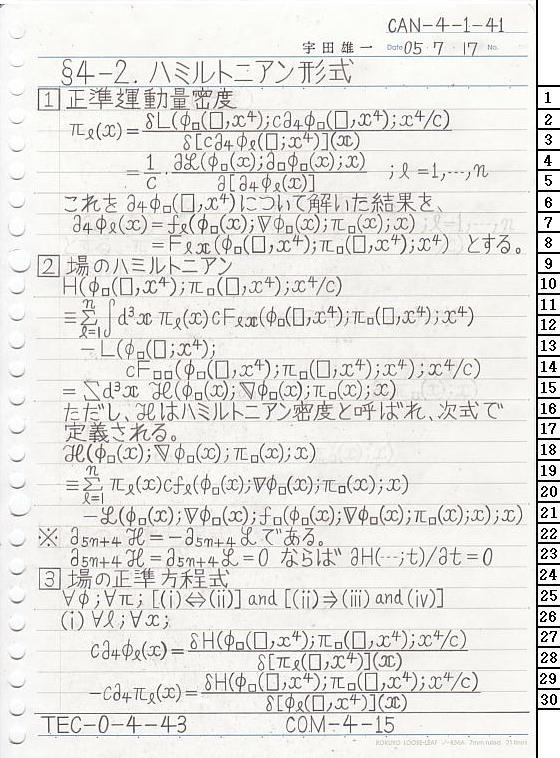 CAN-4-1-41
宇田雄一 Date 05・7・17 No.
§4-2. ハミルトニアン形式
1 正準運動量密度
π_ℓ(x) = δL(φ□(□,x⁴); c∂₄φ□(□,x⁴); x⁴/c) / δ[c∂₄φ_ℓ(□;x⁴)](𝐱)
= 1/c · ∂ℒ(φ□(x); ∂□φ□(x); x) / ∂[∂₄φ_ℓ(x)] ; ℓ=1,…,n
これを ∂₄φ□(□,x⁴)について解いた結果を、
∂₄φ_ℓ(x) = f_ℓ(φ□(x); ∇φ□(x); π□(x); x) ; ℓ=1,…,n
= F_ℓ𝐱(φ□(□,x⁴); π□(□,x⁴); x⁴) とする。
2 場のハミルトニアン
H(φ□(□,x⁴); π□(□,x⁴); x⁴/c)
≡ Σ_{ℓ=1}^{n} ∫d³x π_ℓ(x) cF_ℓ𝐱(φ□(□,x⁴); π□(□,x⁴); x⁴)
−L(φ□(□;x⁴);
cF□□(φ□(□,x⁴); π□(□,x⁴); x⁴); x⁴/c)
= ∫d³x ℋ(φ□(x); ∇φ□(x); π□(x); x)
ただし、ℋはハミルトニアン密度と呼ばれ、次式で
定義される。
ℋ(φ□(x); ∇φ□(x); π□(x); x)
≡ Σ_{ℓ=1}^{n} π_ℓ(x) cf_ℓ(φ□(x); ∇φ□(x); π□(x); x)
−ℒ(φ□(x); ∇φ□(x); f□(φ□(x); ∇φ□(x); π□(x); x); x)
※ ∂₅ₙ₊₄ℋ = −∂₅ₙ₊₄ℒ である。
∂₅ₙ₊₄ℋ = ∂₅ₙ₊₄ℒ = 0 ならば ∂H(…;t)/∂t = 0
3 場の正準方程式
∀φ; ∀π; [(i)⇔(ii)] and [(ii)⇒(iii) and (iv)]
(i) ∀ℓ; ∀x;
c∂₄φ_ℓ(x) = δH(φ□(□,x⁴); π□(□,x⁴); x⁴/c) / δ[π_ℓ(□,x⁴)](𝐱)
−c∂₄π_ℓ(x) = δH(φ□(□,x⁴); π□(□,x⁴); x⁴/c) / δ[φ_ℓ(□,x⁴)](𝐱)
TEC-0-4-43 COM-4-15
KOKUYO LOOSE-LEAF ノ-836A 7mm ruled
1
2
3
4
5
6
7
8
9
10
11
12
13
14
15
16
17
18
19
20
21
22
23
24
25
26
27
28
29
30